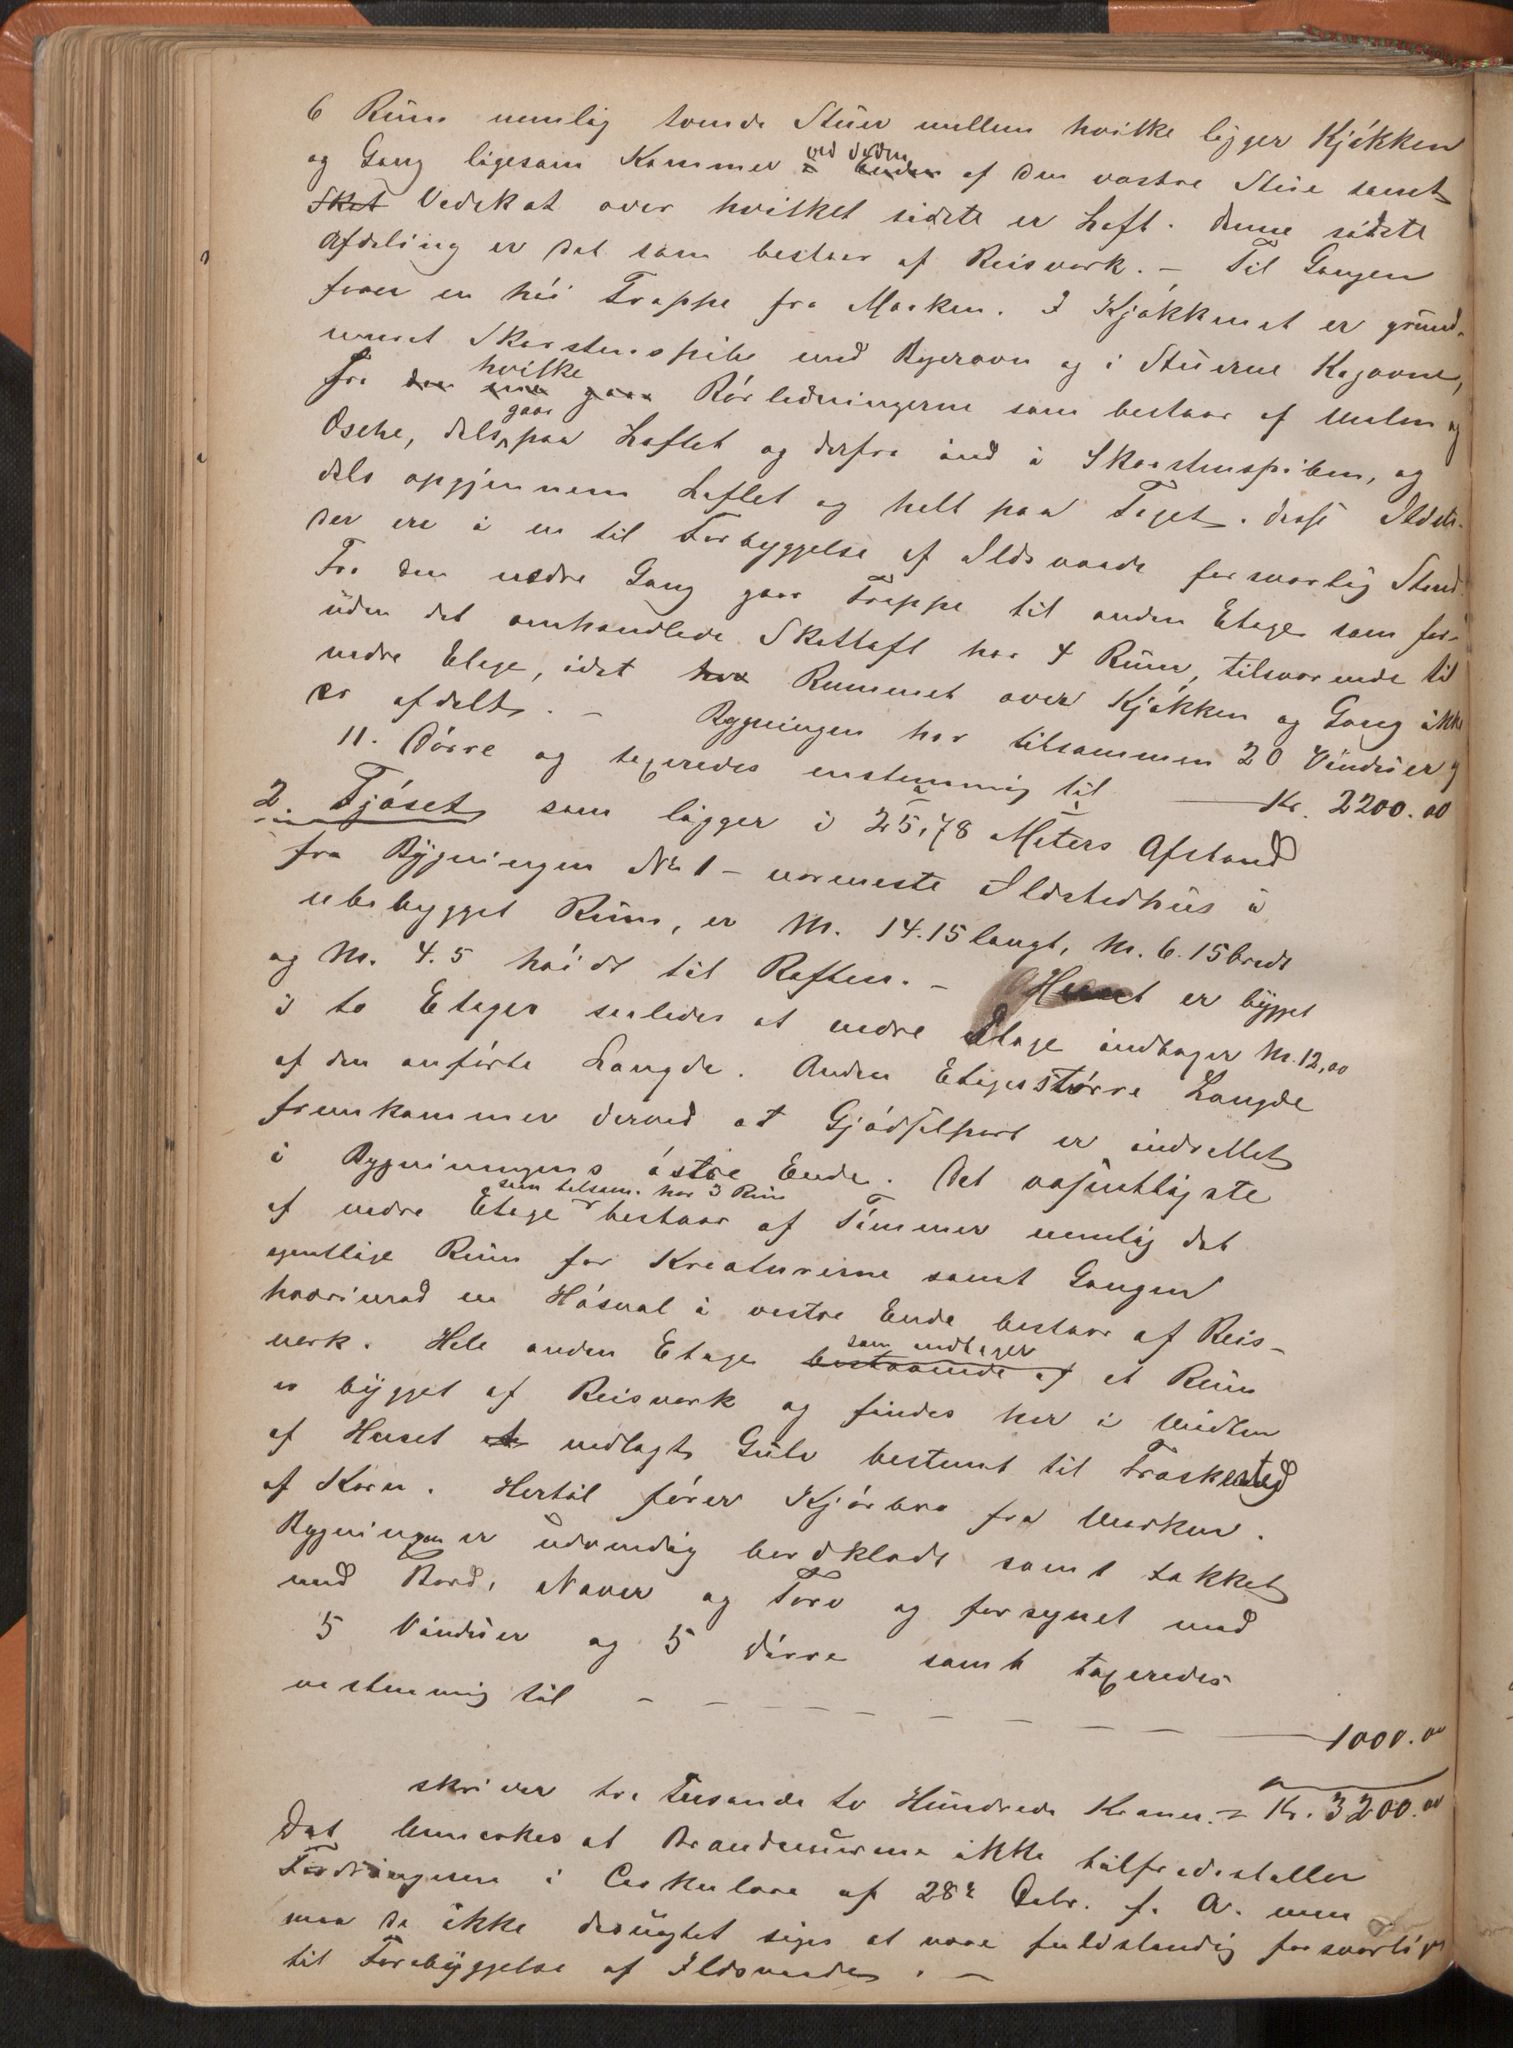 6 Rum nemlig tvende Stuer mellem hvilke ligger Kjökken
og Gang ligesom Kammer ved Siden af den vestre Stue samt
Skot Vedskot over hvilket sidste er Loft. Denne sidste
Afdeling er det som bestaar af Reisverk. – Til Gangen
fører en höi Trappe fra Marken. I Kjøkkenet er grund-
muret Skorstenspibe med Bagerovn og i Stuerne Kagovne,
fra hvilke Rörledningerne som bestaar af Malm og
Osche, dels gaar paa Loftet og derfra ind i Skorstenspiben, og
dels opgjennem Loftet og helt paa Taget. Disse Ildste-
der ere i en til Forbyggelse af Ildsvaade forsvarlig Stand.
Fra den nedre Gang gaar Trappe til anden Etage som for-
uden det omhandlede Skotloft har 4 Rum, tilsvarende til
nedre Etage, idet Rummet over Kjökken og Gang ikke
er afdelt. – Bygningen har tilsammen 20 Vinduer og
11. Dörre og taxeredes enstemmig til — Kr. 2200.00
2. Fjöset som ligger i 25,78 Meters Afstand
fra Bygningen No 1 – nærmeste Ildstedhus i
ubebygget Rum, er M. 14.15 langt, M. 6.15 bredt
og M. 4.5 höidt til Raften. – Huset er bygget
i to Etager saaledes at nedre Etage indtager M. 12,00
af den anförte Længde. Anden Etages större Længde
fremkommer derved at Gjödselport er indrettet
i Bygningens östre Ende. Det væsentligste
af nedre Etage som tilsam. har 3 Rum bestaar af Tömmer nemlig det
egentlige Rum for Kreaturerne samt Gangen
hvorimod en Hösval i vestre Ende bestaar af Reis-
verk. Hele anden Etage bestaaende af som indtager et Rum
er bygget af Reisverk og findes her i Midten
af Huset nedlagt Gulv bestemt til Træskested
af Korn. Hertil förer Kjörbro fra Marken.
Bygningen er udvendig bordklædt samt tækket
med Bord, Næver og Torv og forsynet med
5 Vinduer og 5 Dörre samt taxeredes
enstemmig til – – – – – – – — 1000.00
skriver tre Tusende to Hundrede Kroner = Kr. 3200.00
Det bemærkes at Brandmurene ikke tilfredsstiller
Fordringerne i Cirkulære af 28de Octbr. f. A. men
maa de ikke desugtet siges at være fuldstændig forsvarlige
til Forebyggelse af Ildsvaade. –